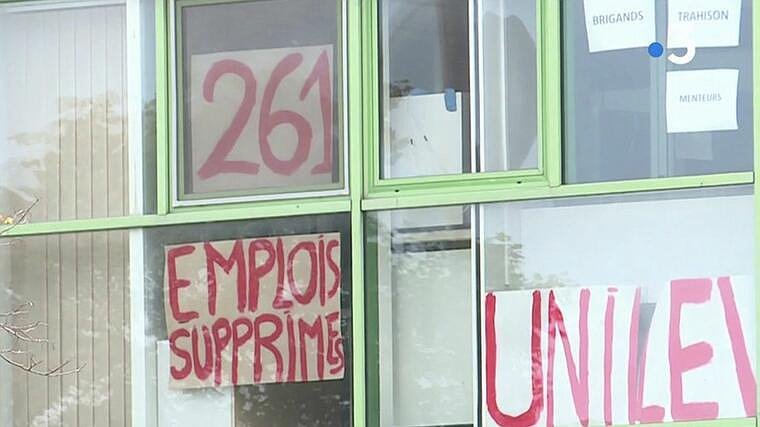 261
EMPLOIS
SUPPRIMES
BRIGANDS
TRAHISON
3
MENTEURS
UNILEV